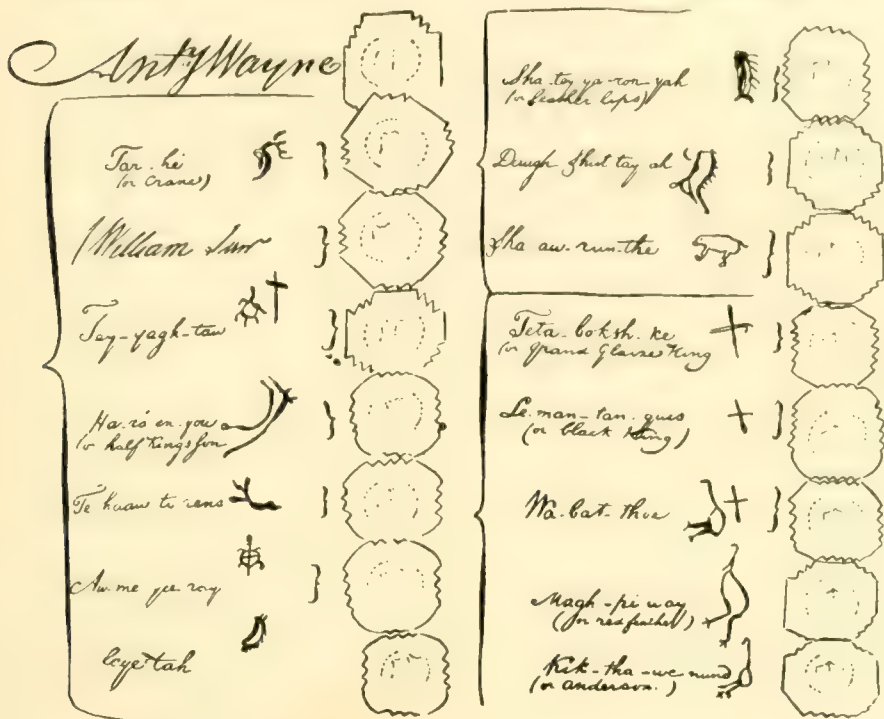 Anty Wayne
Tar-hè
(or Crane)
J William Sur
Tey-yagh-taw
Ha-ro en-you
or half Kings son
Te haaw to rens
Aw-me yee ray
Leye-tah
Sha-tey ya-ron yah
(or Leather lips)
Daugh Shut tay ah
Sha aw-run-the
Teta-boksh-ke
(or Grand Glaize King
Le-man-tan-quis
(or black King)
Wa-bat-thoe
Magh-pi way
(or red feather)
Kik-tha-we nund
(or anderson.)